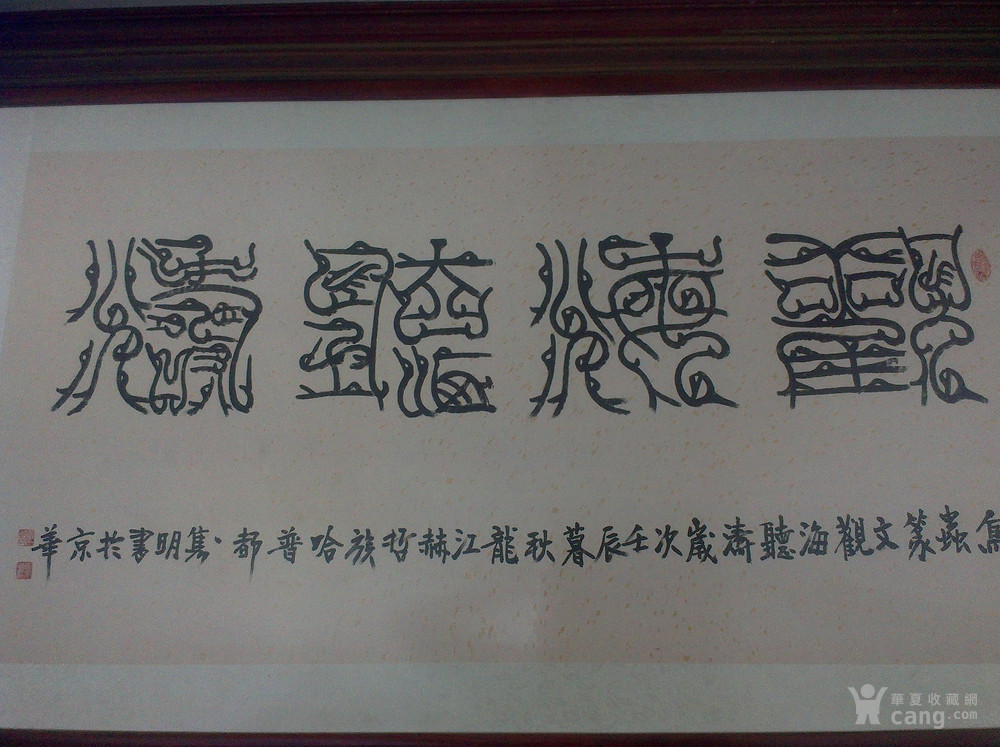 觀海聽濤
鳥蟲篆文觀海聽濤歲次壬辰暮秋龍江赫哲族哈普都·隽明書於京華
華夏收藏網
cang.com